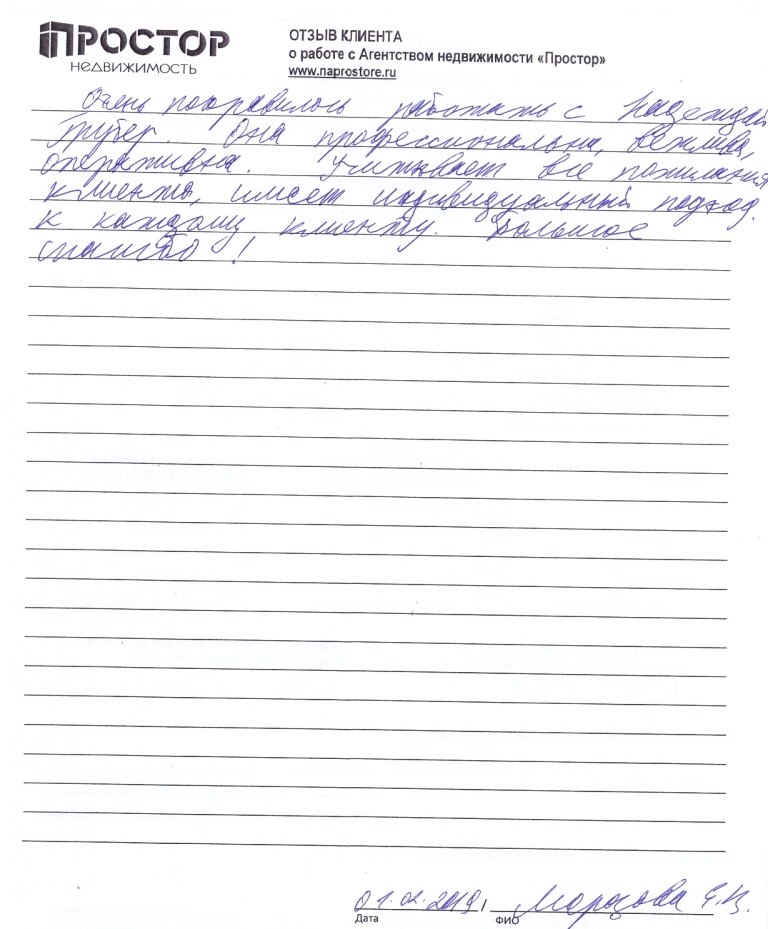 ПРОСТОР
НЕДВИЖИМОСТЬ
ОТЗЫВ КЛИЕНТА
о работе с Агентством недвижимости «Простор»
www.naprostore.ru
Очень понравилось работать с Надеждой
Грубер. Она профессиональна, вежлива,
оперативна. Учитывает все пожелания
клиента, имеет индивидуальный подход
к каждому клиенту. Большое
спасибо!
01.02.2019 / Морозова Е.В.
Дата ФИО